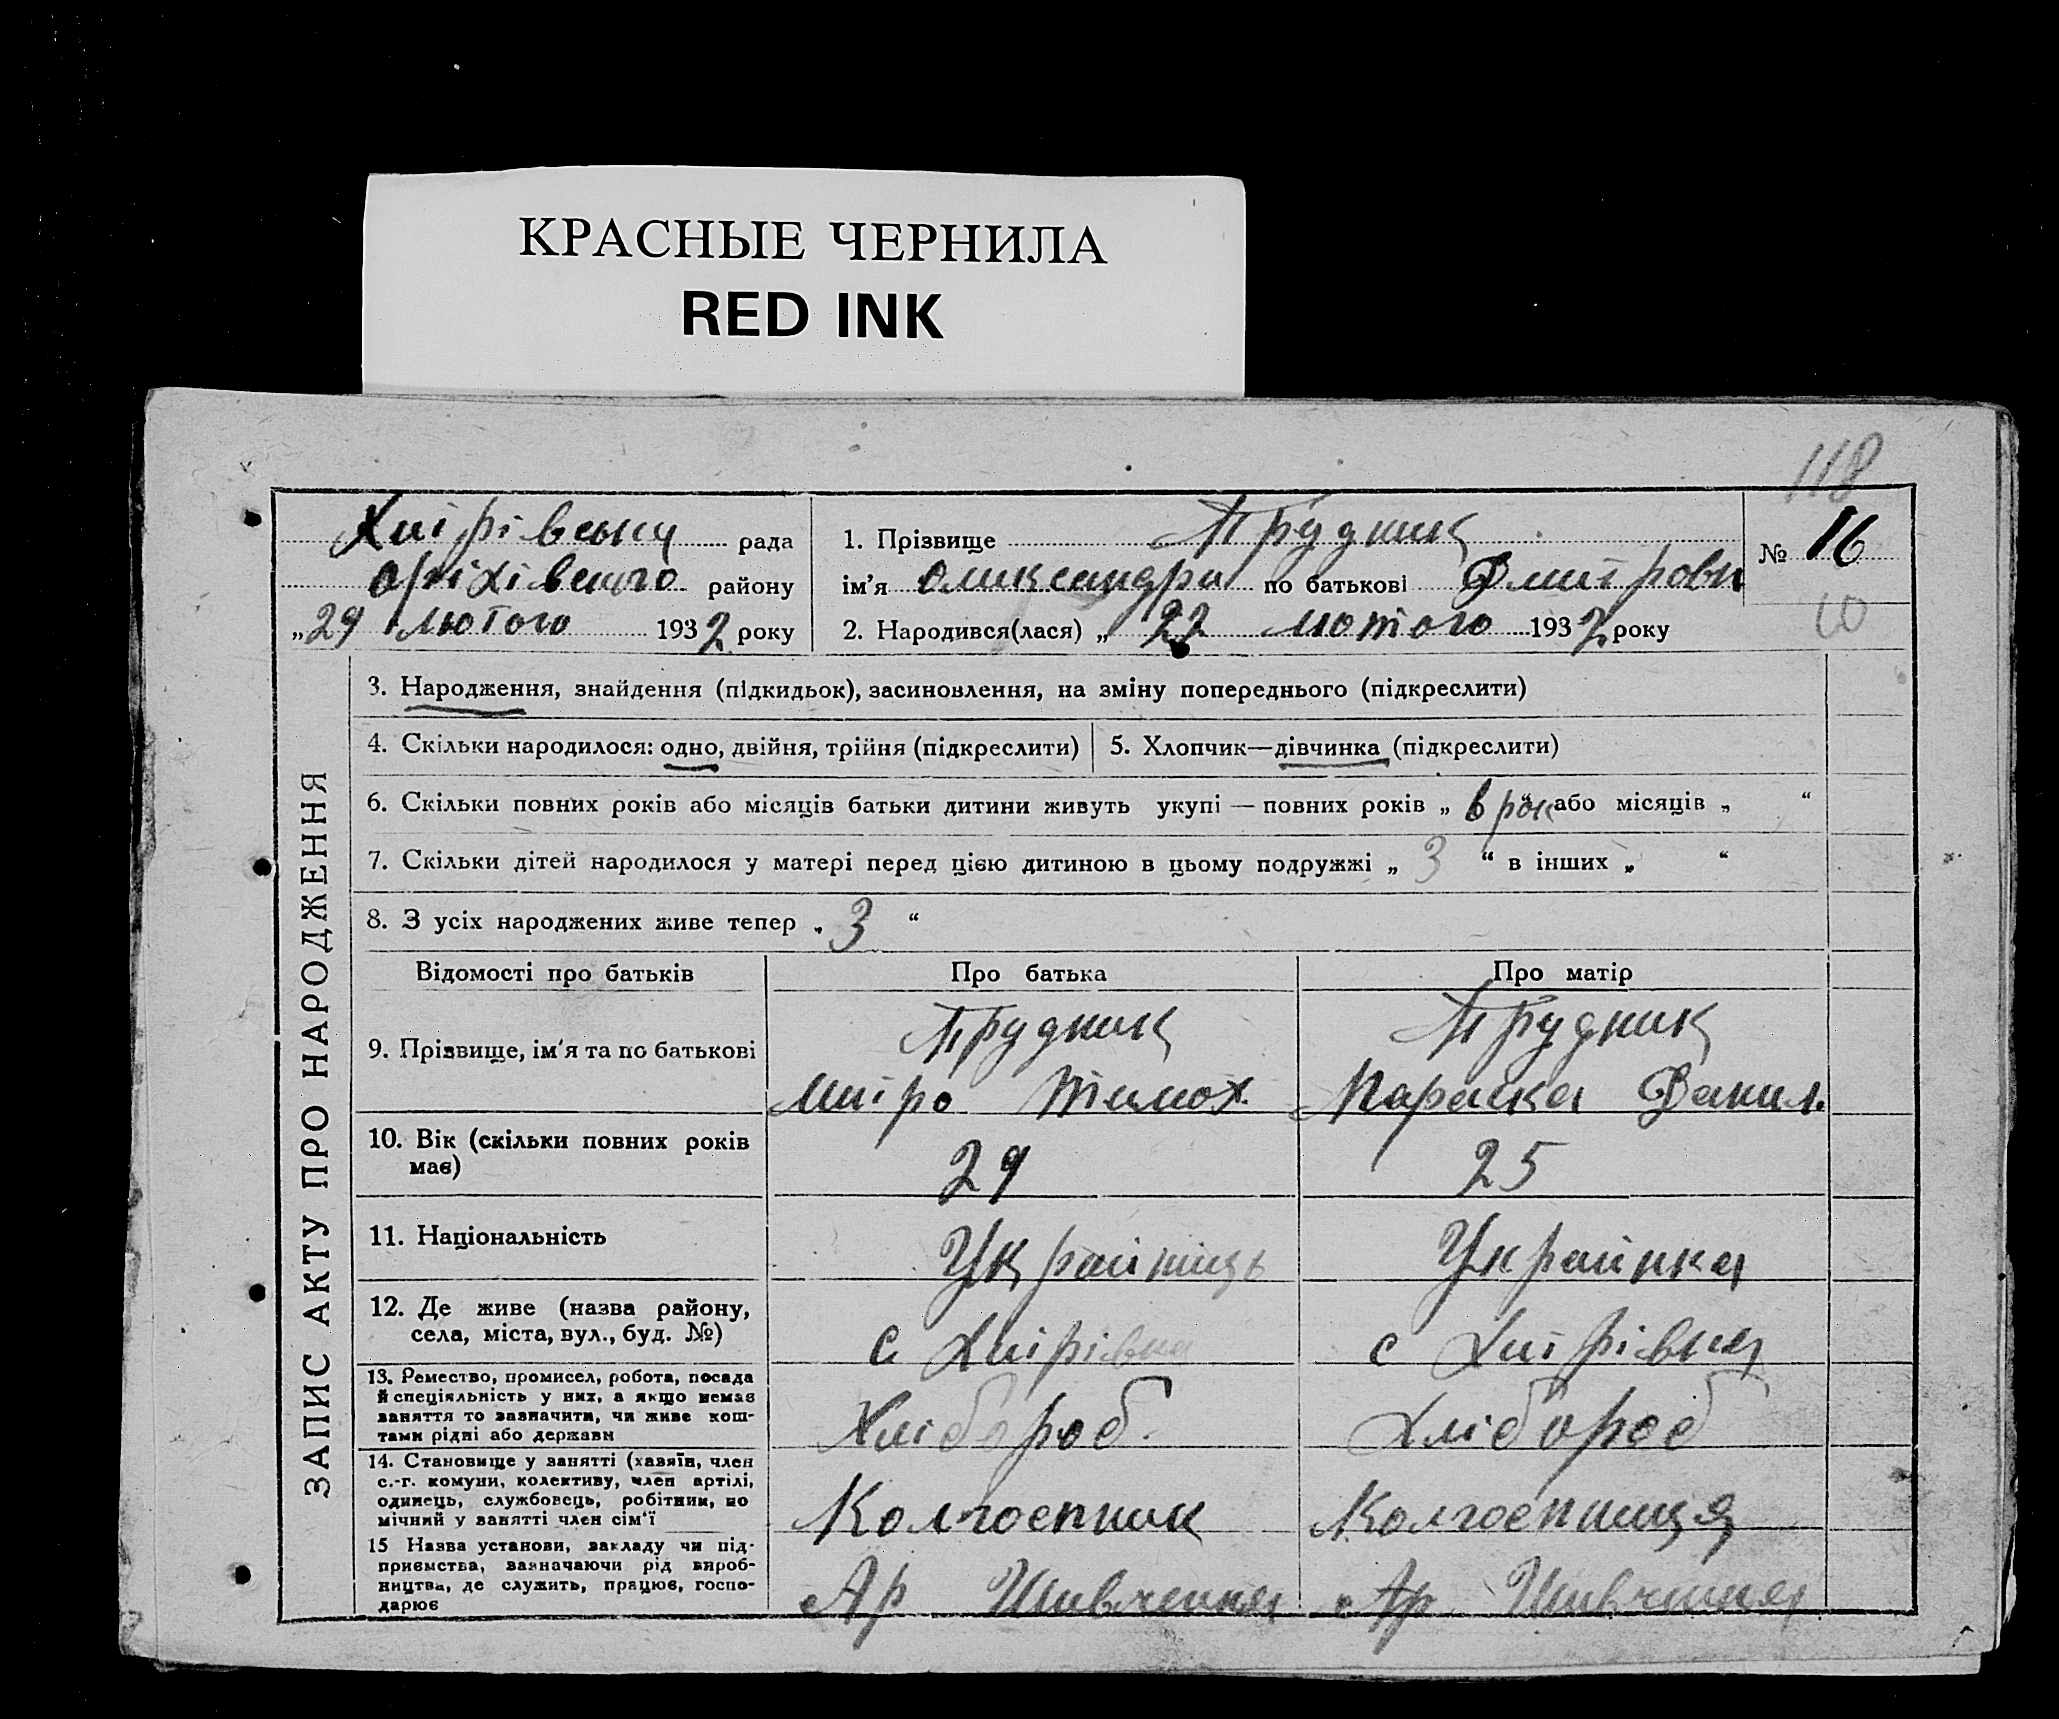 КРАСНЫЕ ЧЕРНИЛА
RED INK
118
Хпірівська рада
Оріхівсього району
„29 лютого 1932 року
1. Прізвище Прудник
ім’я Оликсандра по батькові Дмитровн
2. Народився(лася) „ 22 лютого 1932 року
№ 16
10
ЗАПИС АКТУ ПРО НАРОДЖЕННЯ
3. Народження, знайдення (підкидьок), засиновлення, на зміну попереднього (підкреслити)
4. Скільки народилося: одно, двійня, трійня (підкреслити)
5. Хлопчик—дівчинка (підкреслити)
6. Скільки повних років або місяців батьки дитини живуть укупі — повних років „ 6 рок“ або місяців „ “
7. Скільки дітей народилося у матері перед цією дитиною в цьому подружжі „ 3 “ в інших „ “
8. З усіх народжених живе тепер „ 3 “
Відомості про батьків Про батька Про матір
9. Прізвище, ім’я та по батькові
Прудник Прудник
Тимох. Параска Данил.
10. Вік (скільки повних років має)
29 25
11. Національність
Україниць Українка
12. Де живе (назва району, села, міста, вул., буд. №)
с с
13. Ремество, промисел, робота, посада
й спеціяльність у них, а якщо немає
заняття то зазначити, чи живе кош-
тами рідні або держави
Хлібороб Хлібороб
14. Становище у занятті (хазяїн, член
с.-г. комуни, колективу, член артілі,
одинець, службовець, робітник, по
мічний у занятті член сім’ї
Колгоспник Колгоспниця
15 Назва установи, закладу чи під-
приємства, зазначаючи рід вироб-
ництва, де служить, працює, госпо-
дарює
Ар Шивченка Ар Шивченка